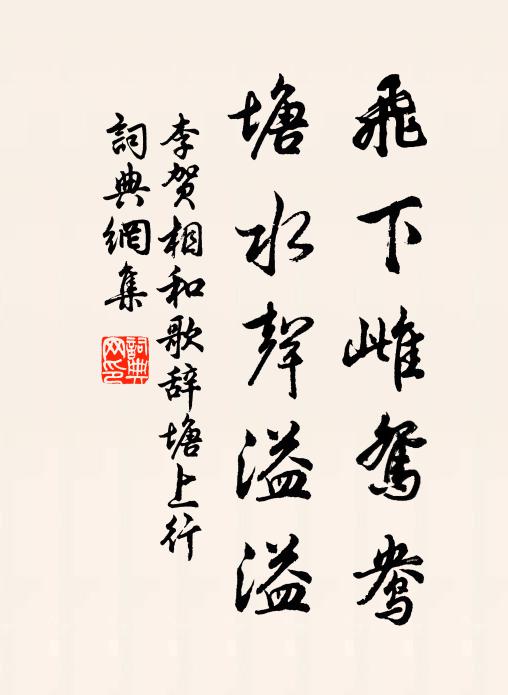 飛下雌鴛鴦
塘水聲溢溢
李賀相和歌辞塘上行
詞典網集
詞典
网印